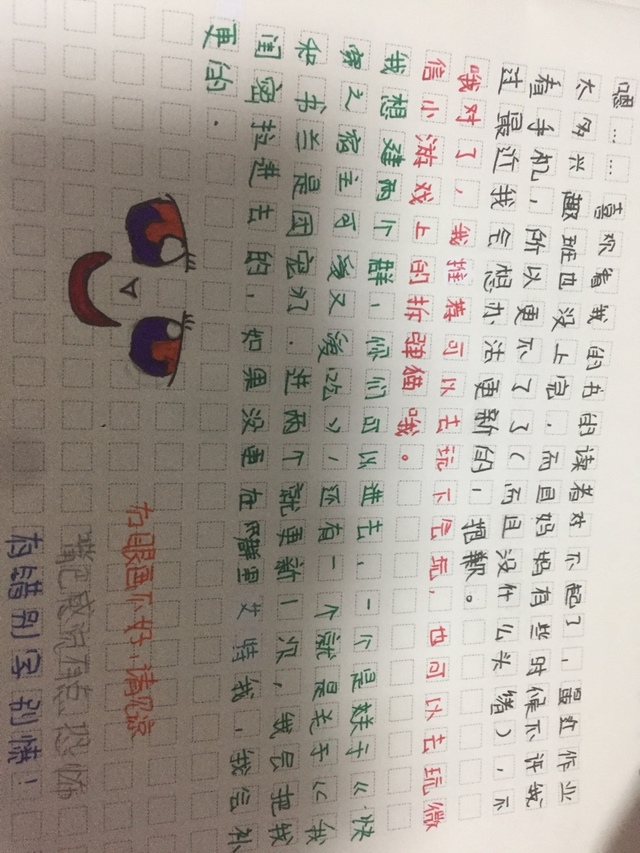 嗯……喜欢看我的书的读者对不起了，最近作业
太多兴趣班也没上完，而且妈妈有些时候不许我
看手机，所以更不了了（而且没什么头绪），不
过最近我会想办法更新的，抱歉。
哦对了，我推荐可以去玩下玩，也可以去玩微
信小游戏上的拆弹猫哦。
我想建两个群，你们可以进去，一个是群子《快
穿之宿主可爱又爱吃》，还有一个就是老子《我
和书兰是团宠》.进两个就更新一次，我会把我
闺密拉进去的，如果没更在群里艾特我，我会补
更的.
右眼画不好，请见谅
有点恐怖
有错别字别愤！